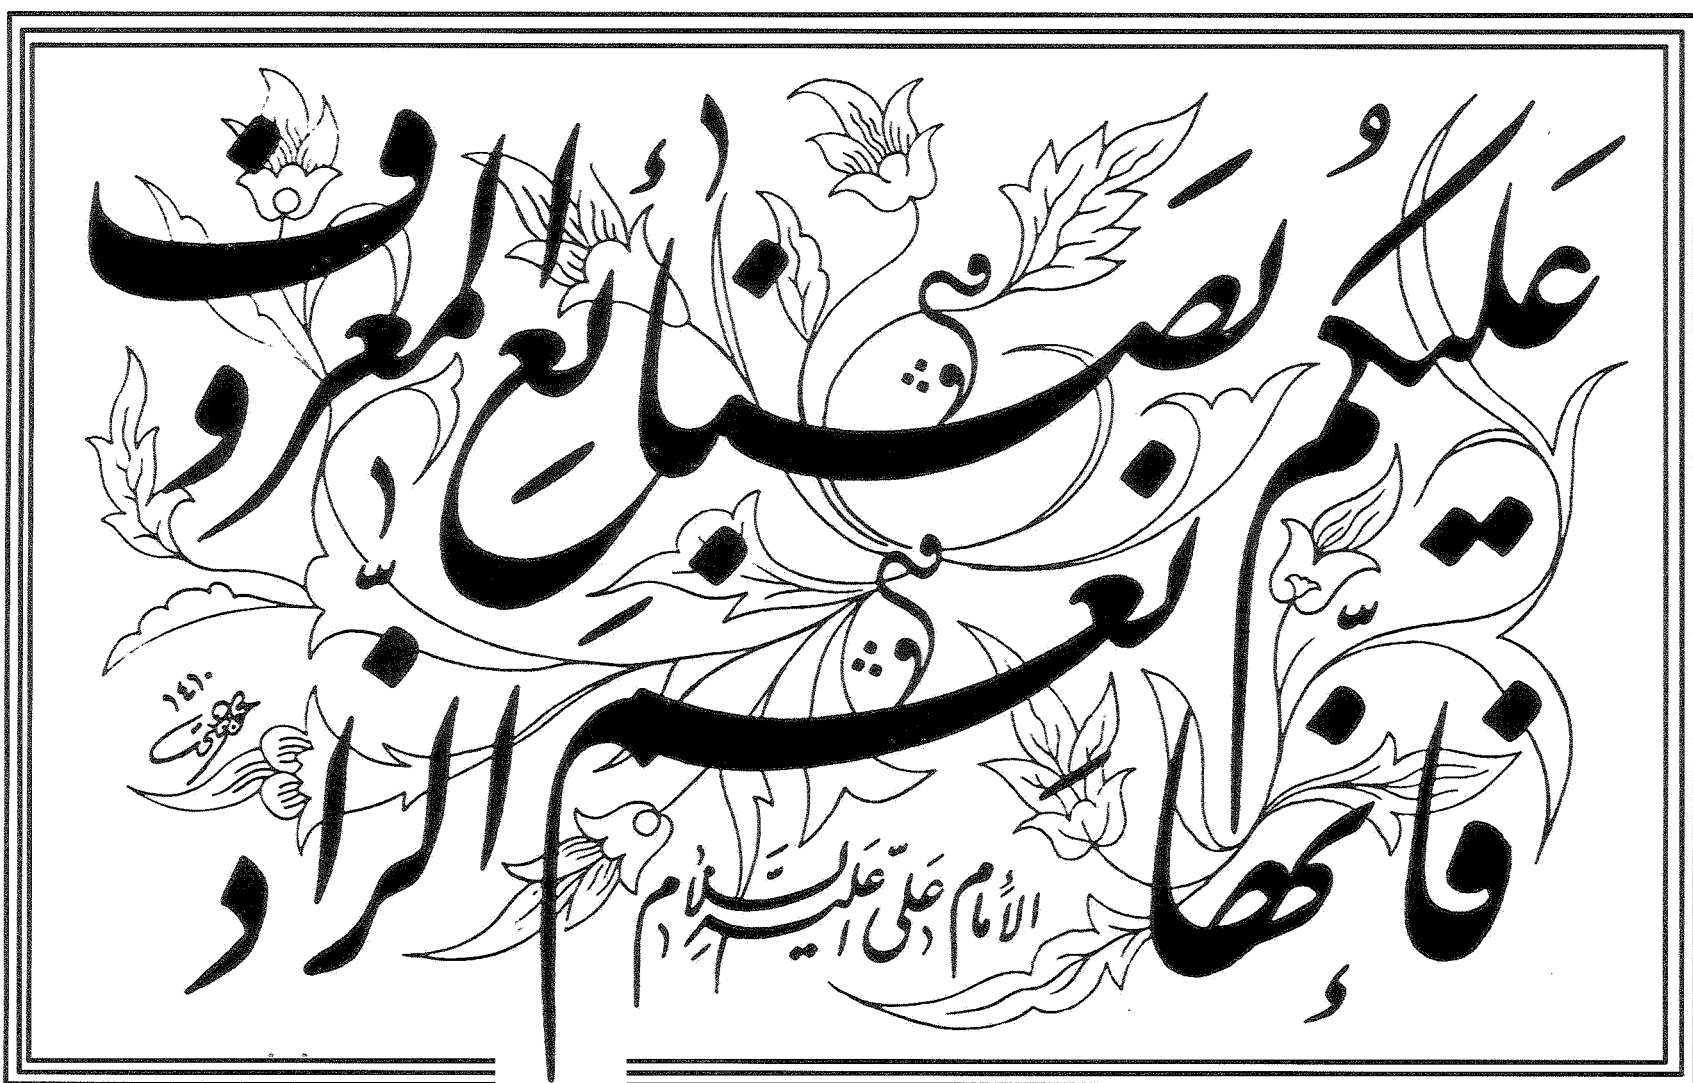 عَلَيكُم بصَنائعِ المعروف
فإنها نعم الزاد
الإمام علی عَليه السَّلام
١٤١٠